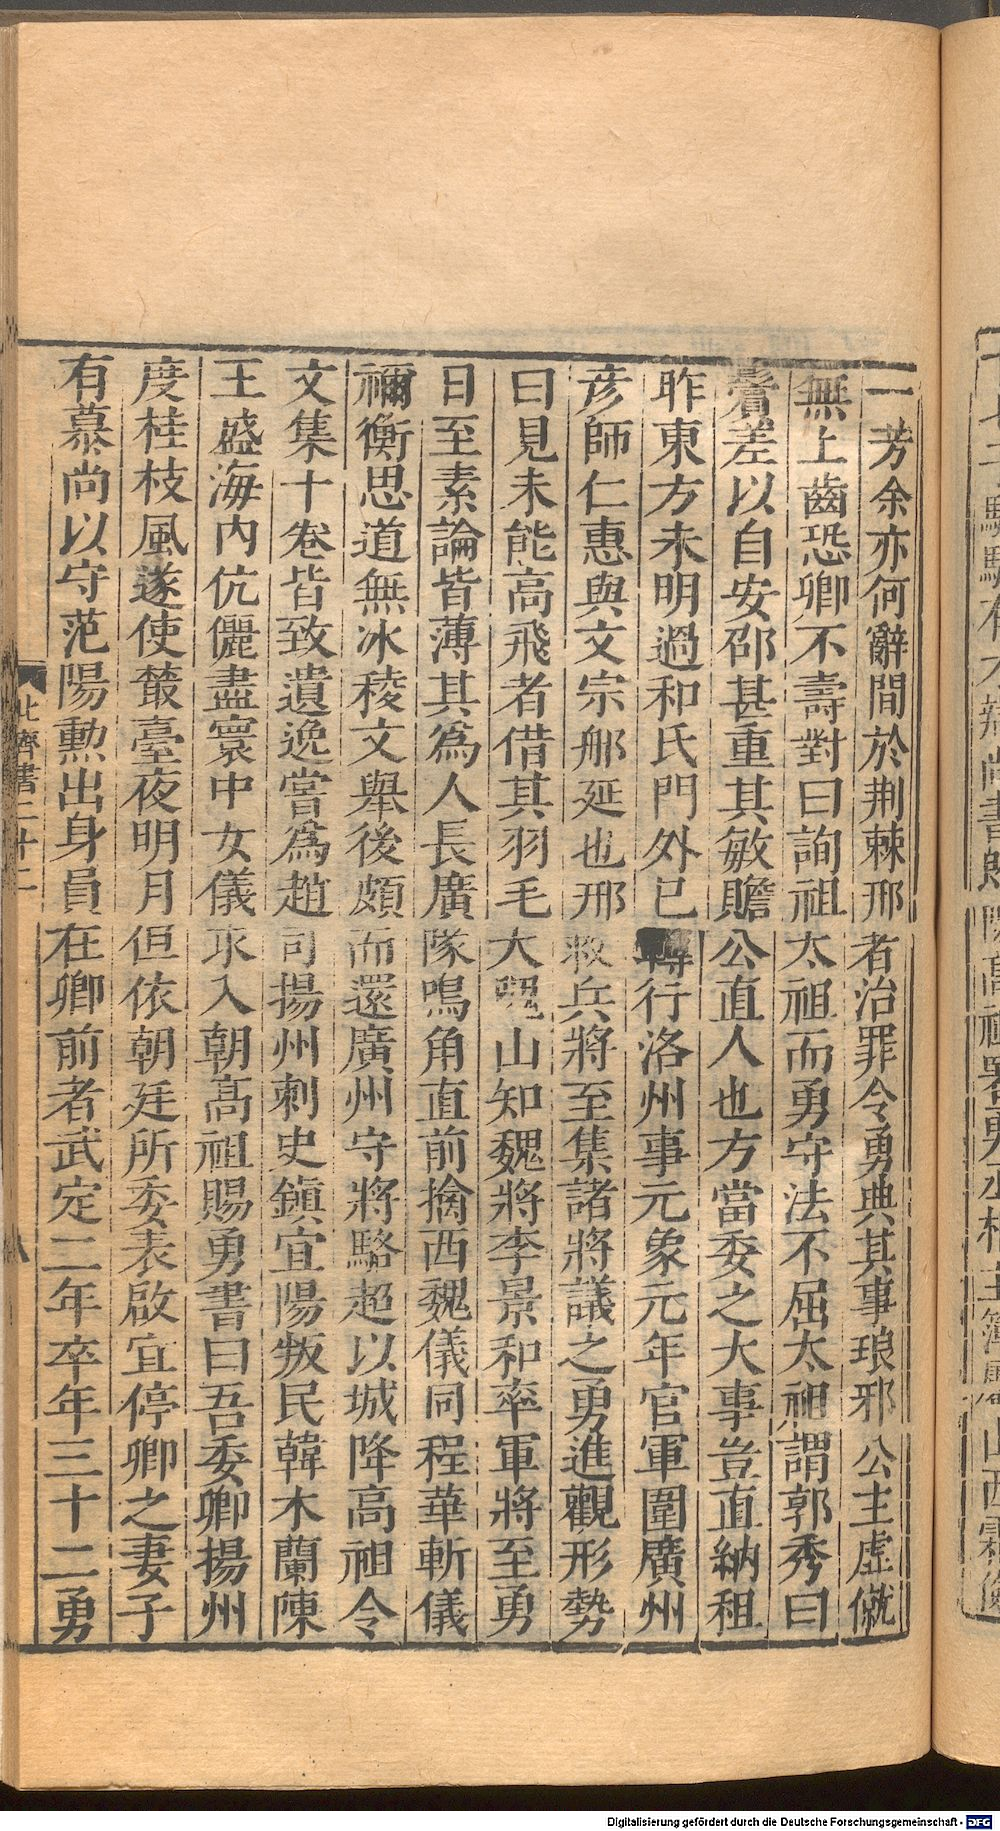 一芳余亦何辭間於荆棘邢者治罪令勇典其事琅邪公主虛僦
無上齒恐卿不壽對曰詢祖太祖而勇守法不屈太祖謂郭秀曰
鬢差以自安邵甚重其敏贍公直人也方當委之大事豈直納租
昨東方未明過和氏門外已轉行洛州事元象元年官軍圍廣州
彥師仁惠與文宗郍延也邢救兵將至集諸將議之勇進觀形勢
曰見未能高飛者借其羽毛大騩山知魏將李景和率軍將至勇
日至素論皆薄其爲人長廣隊鳴角直前擒西魏儀同程華斬儀
禰衡思道無冰稜文舉後頗而還廣州守將駱超以城降高祖令
文集十卷皆致遺逸嘗爲趙司揚州刺史鎮宜陽叛民韓木蘭陳
王盛海內伉儷盡寰中女儀求入朝高祖賜勇書曰吾委卿揚州
度桂枝風遂使藂臺夜明月但依朝廷所委表啟宜停卿之妻子
有慕尚以守范陽勳出身員在卿前者武定二年卒年三十二勇
北齊書二十二
八
Digitalisierung gefördert durch die Deutsche Forschungsgemeinschaft - DFG